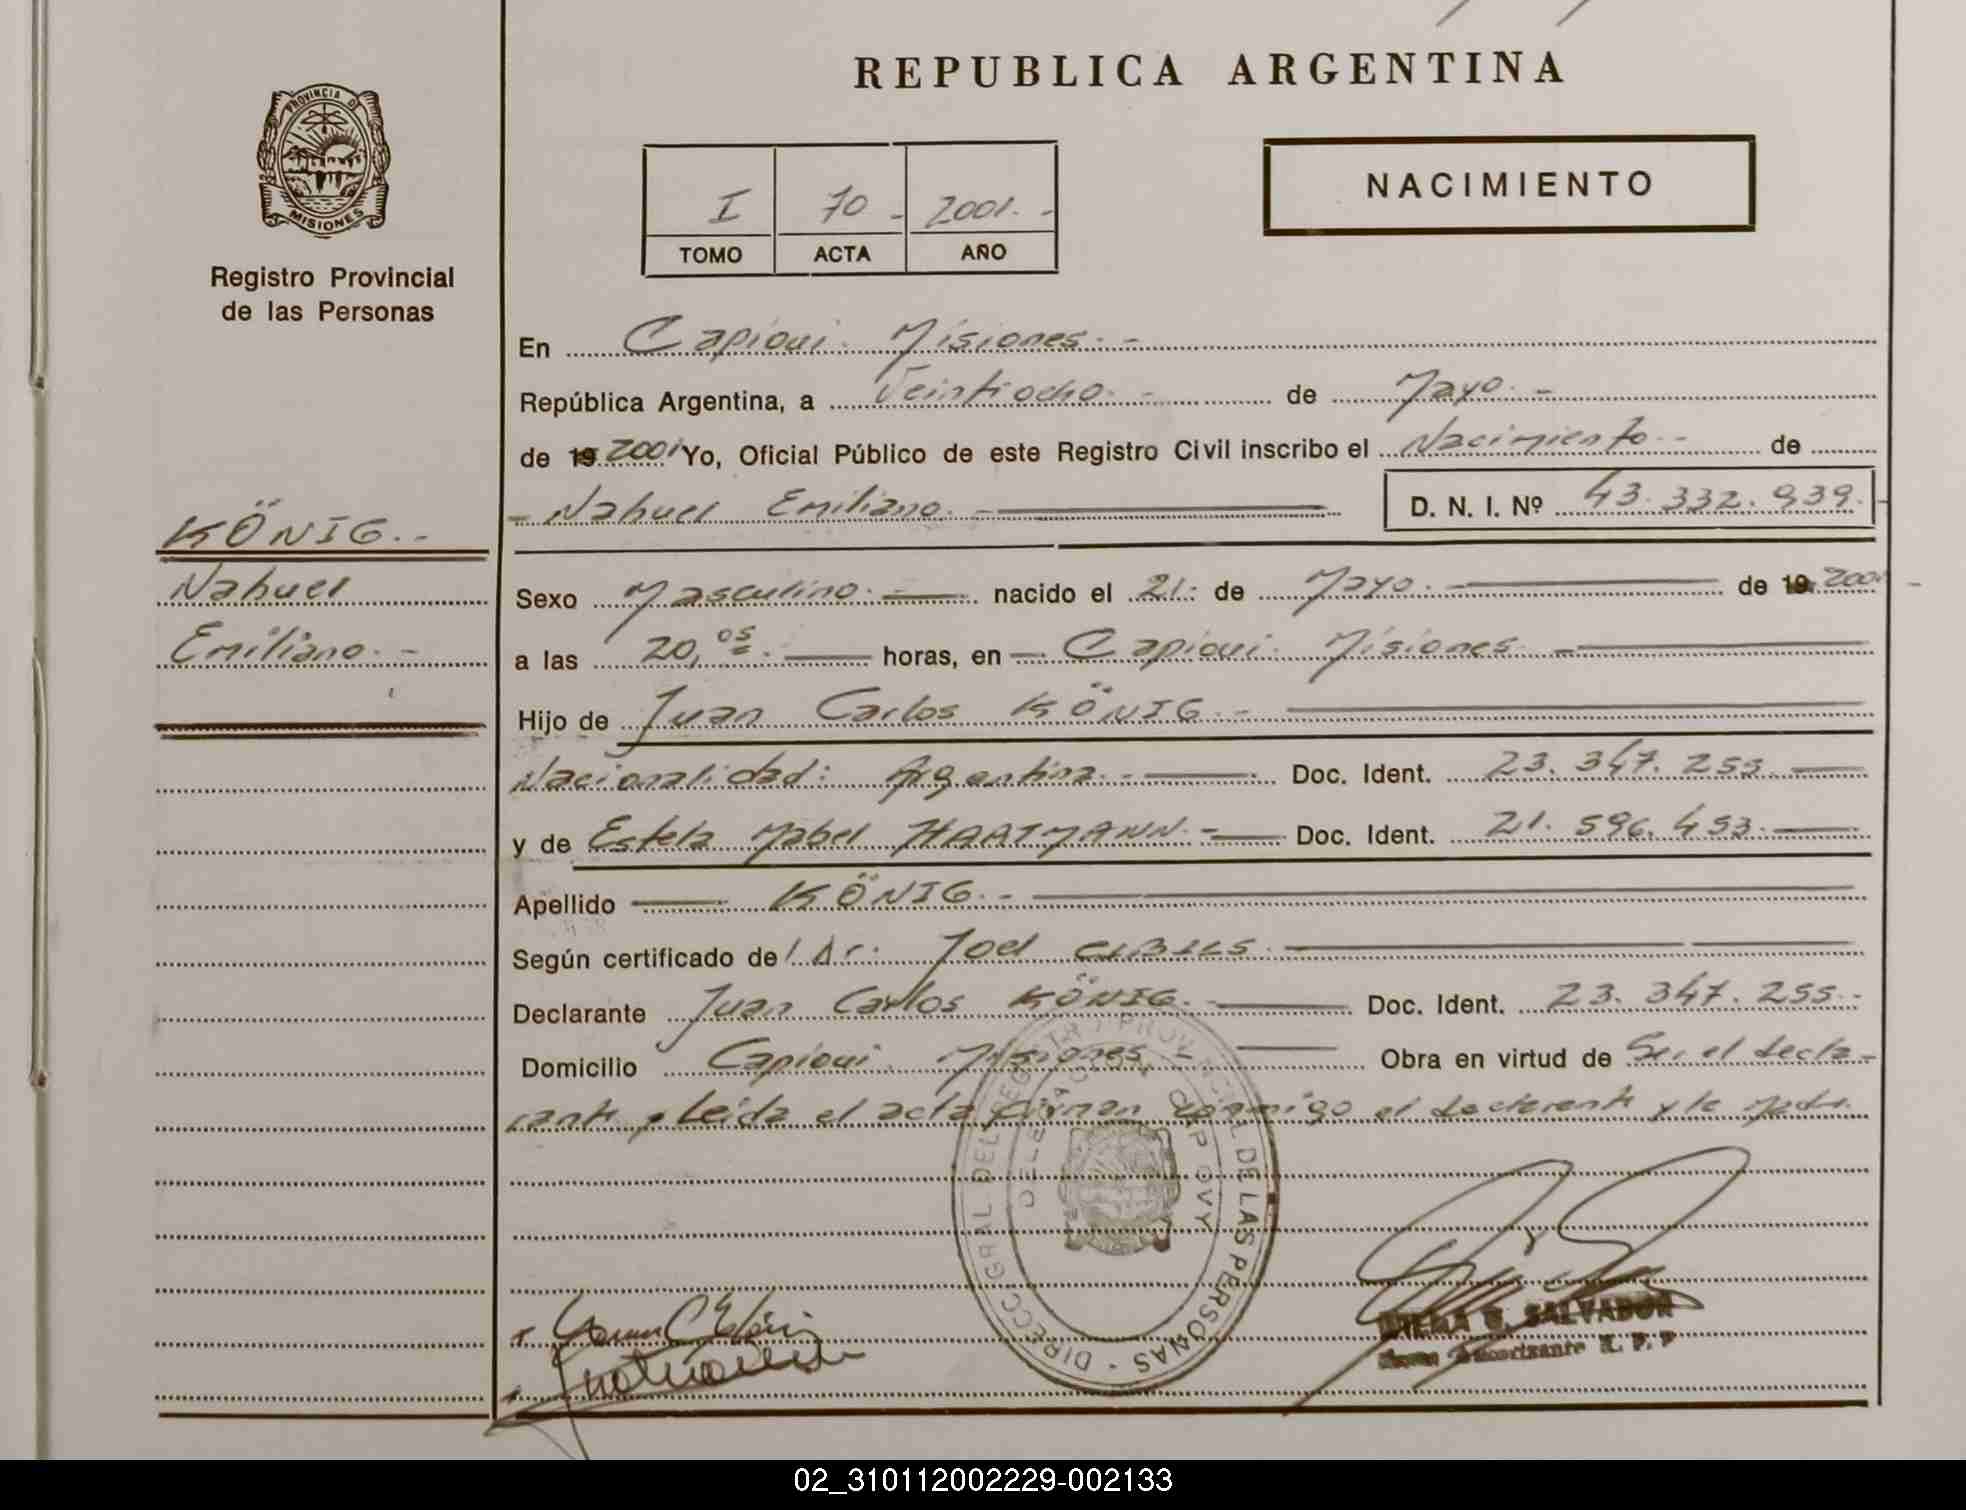 REPUBLICA ARGENTINA
PROVINCIA DE
MISIONES
Registro Provincial
de las Personas
I 70 - 2001. -
TOMO ACTA AÑO
NACIMIENTO
En Capiovi. Misiones. -
República Argentina, a Veintiocho. - de Mayo. -
de 19 2001 Yo, Oficial Público de este Registro Civil inscribo el Nacimiento. - de
- Nahuel Emiliano. - D. N. I. Nº 43.332.939. -
KÖNIG. -
Nahuel
Emiliano. -
Sexo Masculino. - nacido el 21. de Mayo. - de 19 2001 -
a las 20,05. horas, en - Capiovi. Misiones -
Hijo de Juan Carlos KÖNIG. -
Nacionalidad: Argentina. - Doc. Ident. 23.347.255
y de Estela Mabel HARTMANN. - Doc. Ident. 21.596.453.
Apellido KÖNIG. -
Según certificado de l Dr. Joel CIBILS.
Declarante Juan Carlos KÖNIG. - Doc. Ident. 23.347.255. -
Domicilio Capiovi. Misiones - Obra en virtud de Ser el decla-
rante, Leida el acta firman conmigo el declarante y la Madre
DIRECC GRAL DEL REGISTRO PROVINCIAL DE LAS PERSONAS -
DELEGACION CAPIOVY
SALVADOR
Autorizante R. P. P
02_310112002229-002133